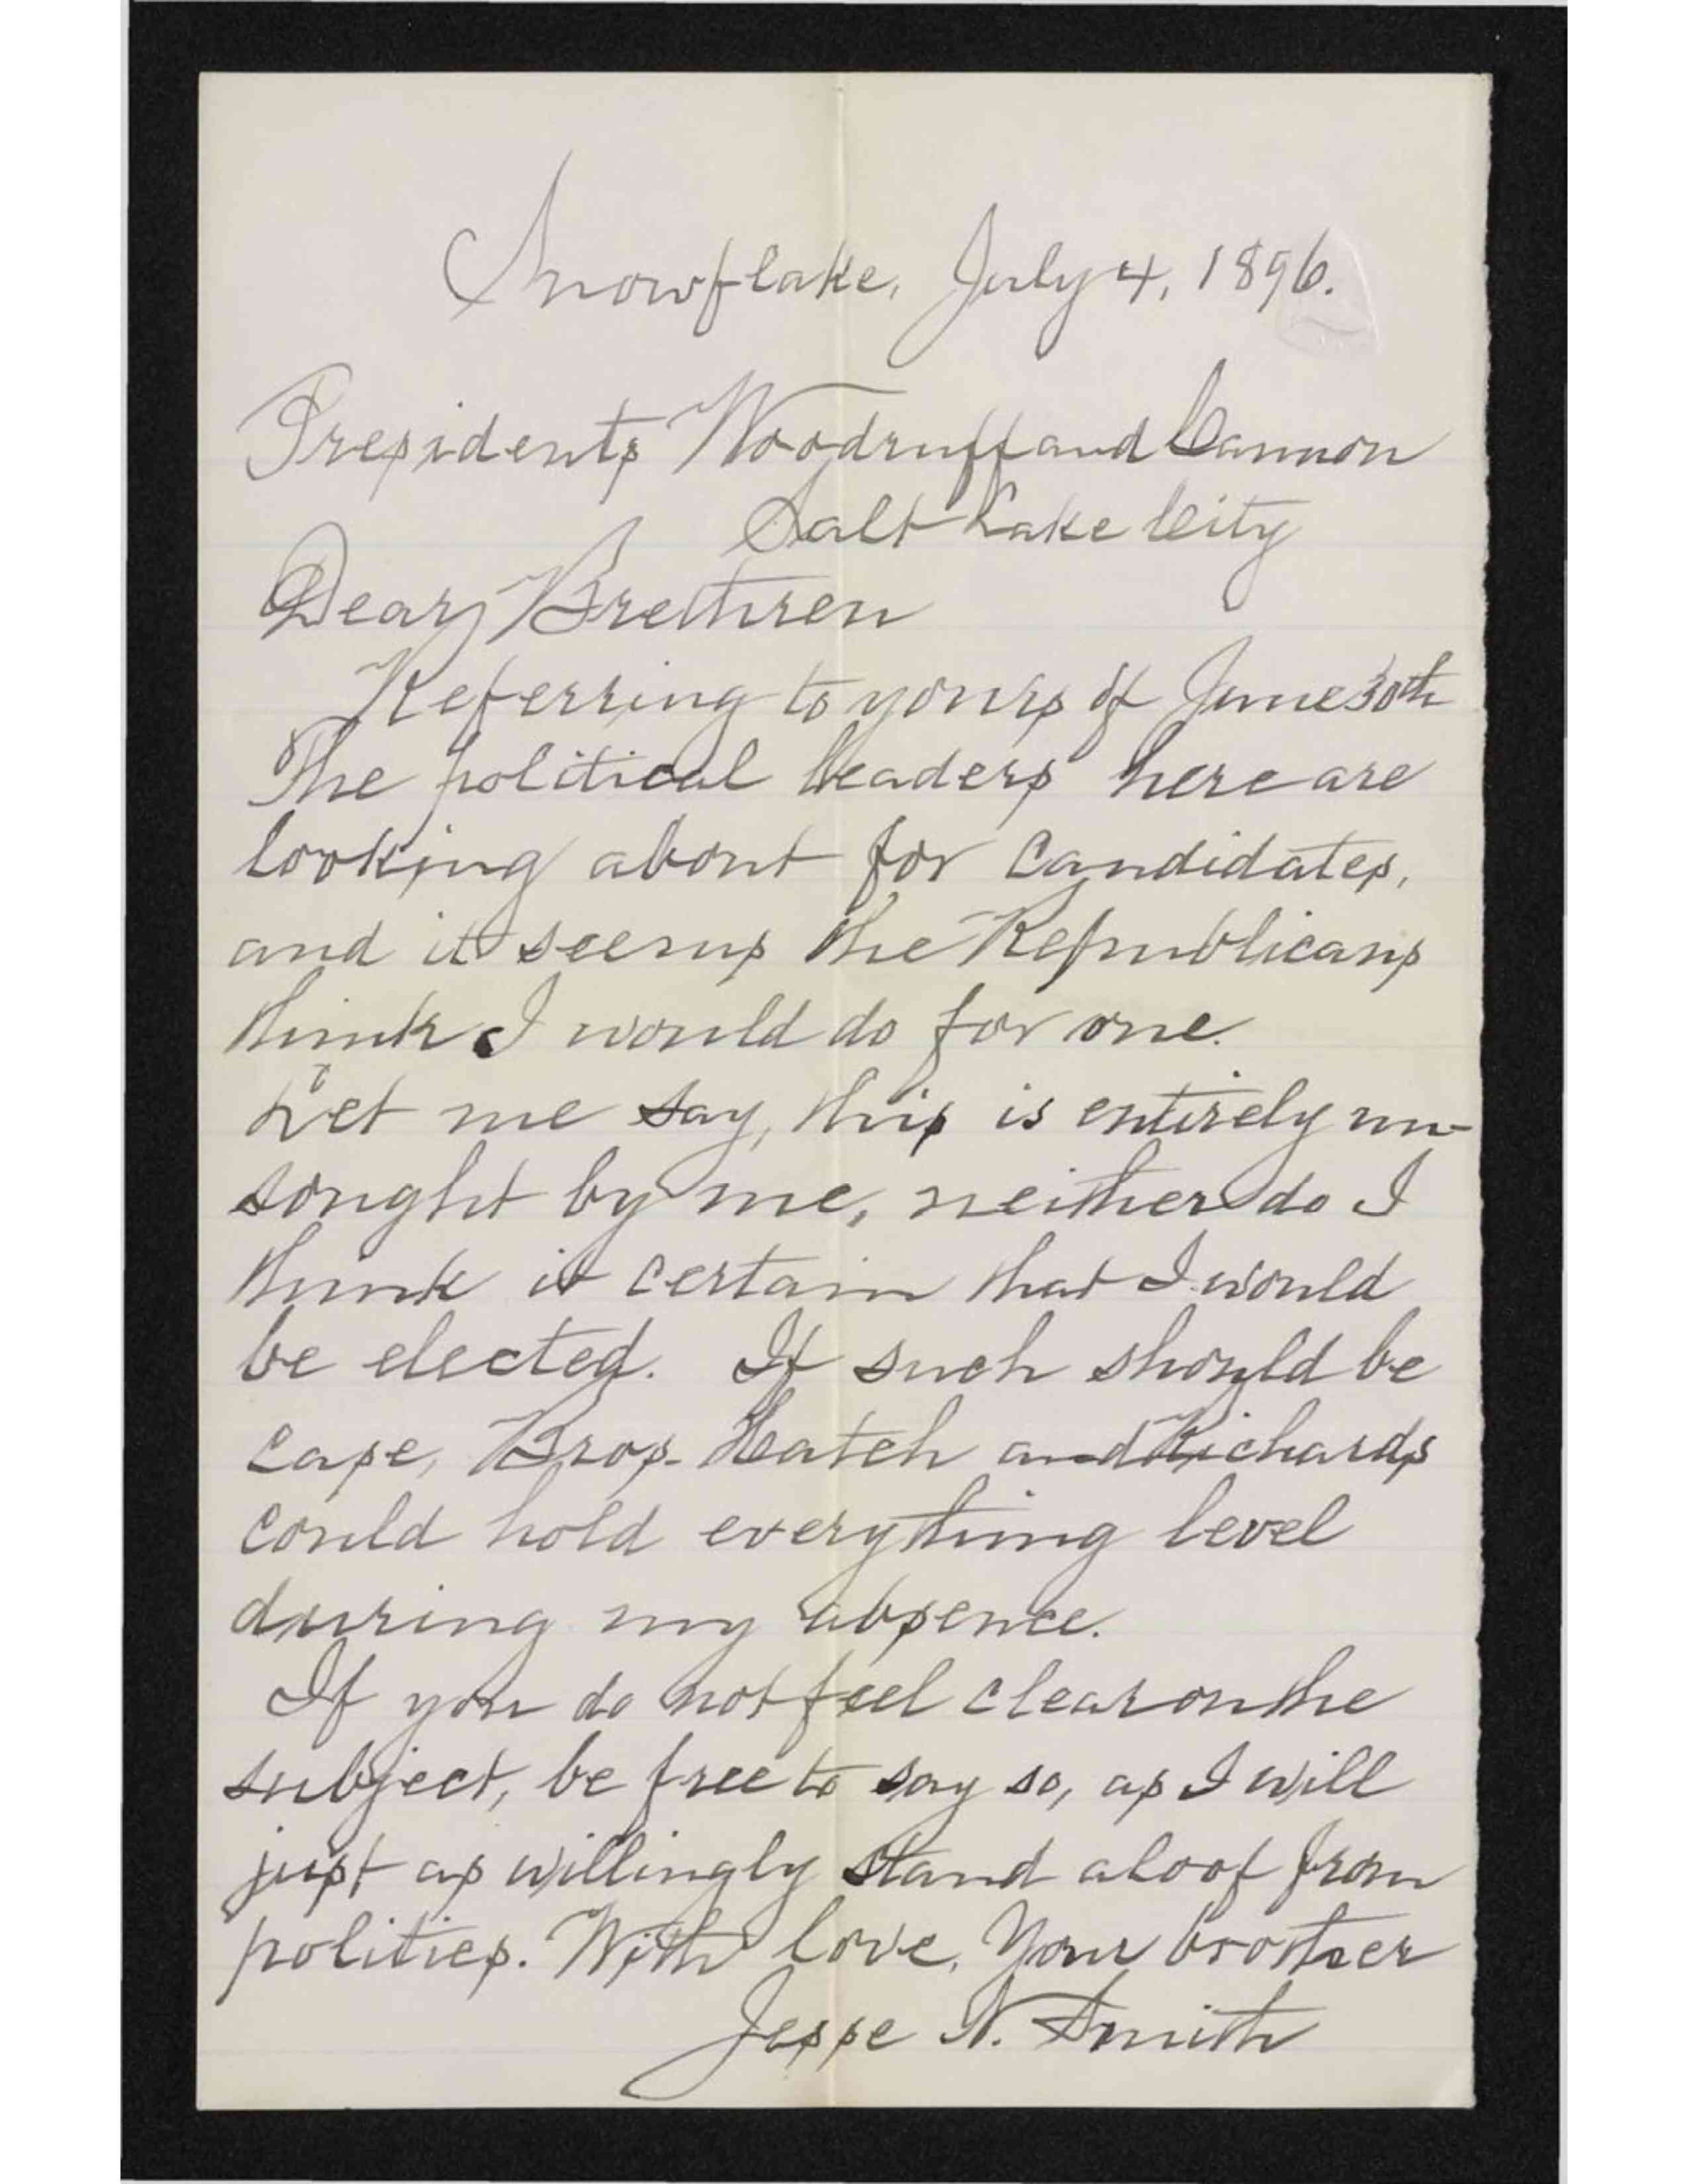 Snowflake, July 4, 1896.
Presidents Woodruff and Cannon
Salt Lake City
Dear Brethren
Referring to yours of June 30th
The political leaders here are
looking about for candidates,
and it seems the Republicans
think I would do for one.
Let me say, this is entirely un-
sought by me, neither do I
think it certain that I would
be elected. If such should be
case, Bros. Hatch and Richards
could hold everything level
during my absence.
If you do not feel clear on the
subject, be free to say so, as I will
just as willingly stand aloof from
politics. With love, Your brother
Jesse N. Smith